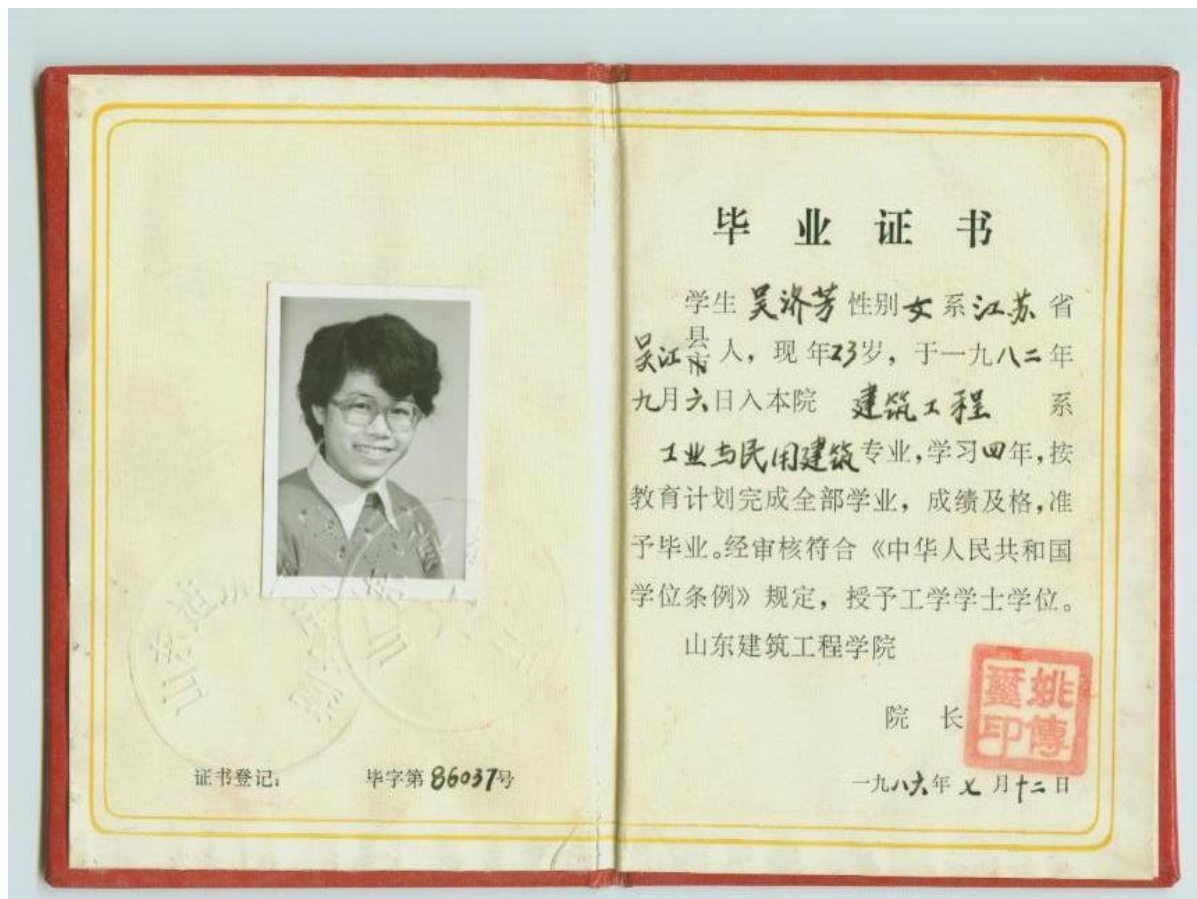 证书登记：　毕字第86037号
毕业证书
学生吴济芳性别女系江苏省
吴江县市人，现年23岁，于一九八二年
九月六日入本院 建筑工程 系
工业与民用建筑专业，学习四年，按
教育计划完成全部学业，成绩及格，准
予毕业。经审核符合《中华人民共和国
学位条例》规定，授予工学学士学位。
山东建筑工程学院
院 长
一九八六年七月十二日